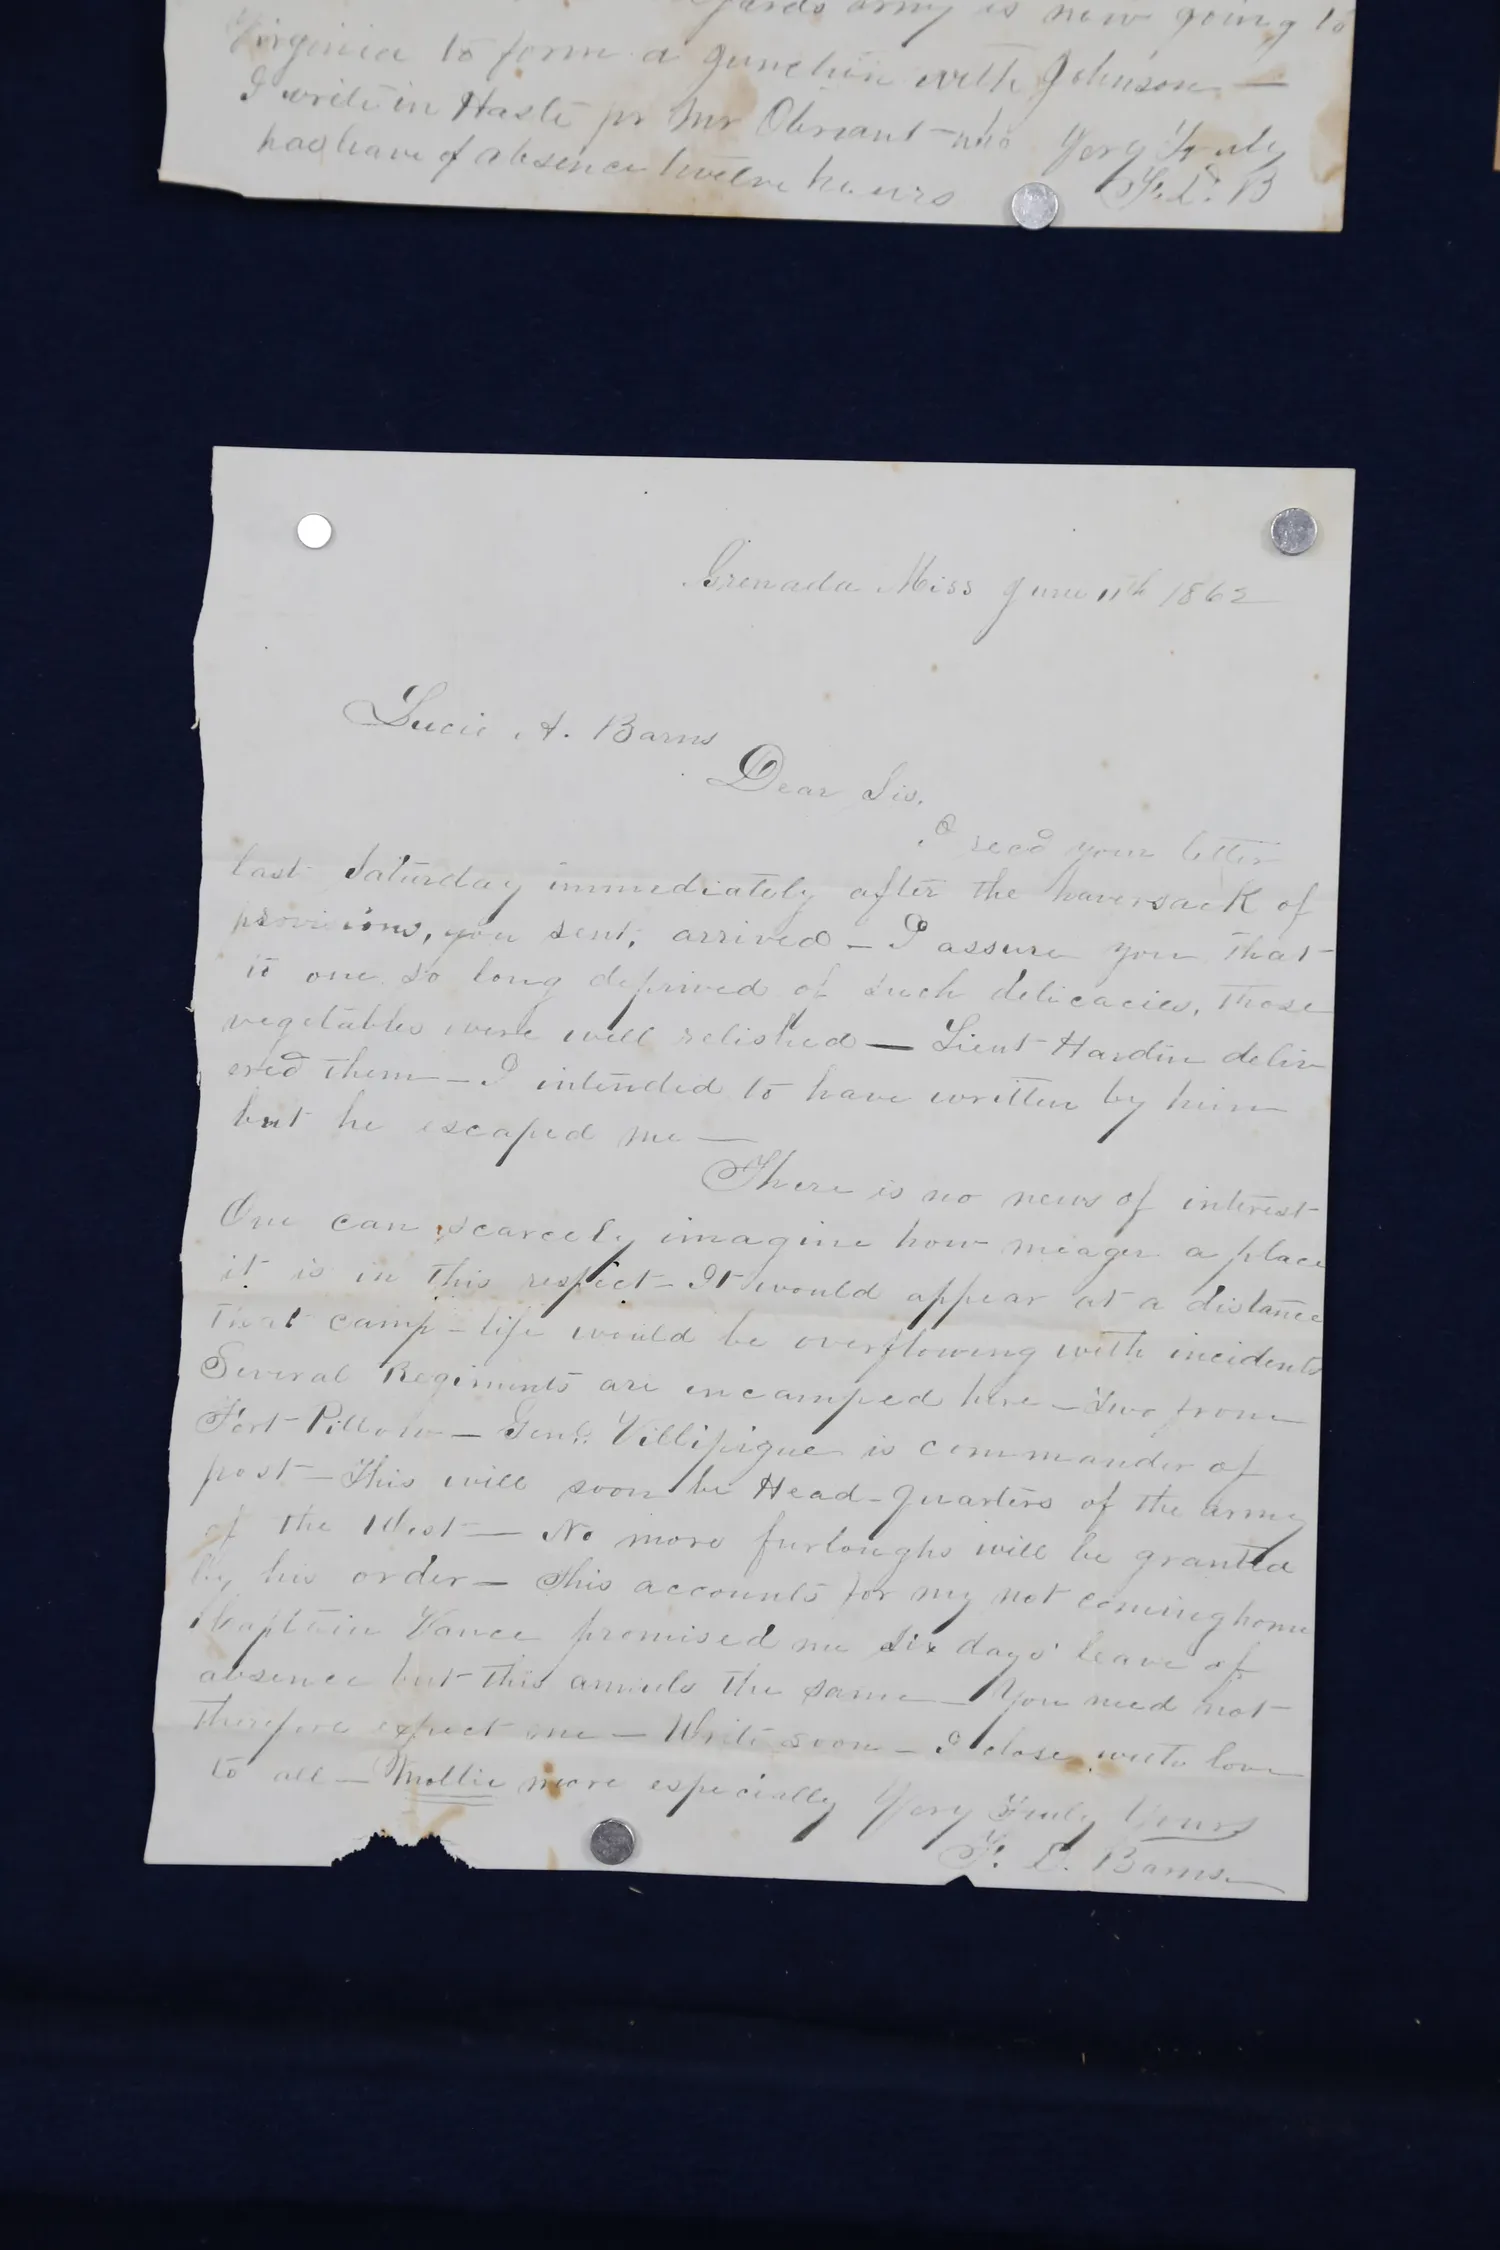 army is now going to
Virginia to form a junction with Johnson —
I write in Haste pr Mr Obriant - who Very Truly
has leave of absence twelve hours F. E. B
Grenada Miss June 11th 1862
Lucie A. Barns
Dear Sis.
I recd your letter
last Saturday immediately after the haversack of
provisions, you sent, arrived — I assure you that
to one so long deprived of such delicacies, those
vegetables were well relished — Lieut Hardin deliv
ered them — I intended to have written by him
but he escaped me —
There is no news of interest
One can scarcely imagine how meager a place
it is in this respect — It would appear at a distance
that camp-life would be overflowing with incidents
Several Regiments are encamped here — Two from
Fort Pillow — Genl. Villipigue is commander of
post — This will soon be Head-Quarters of the army
of the West — No more furloughs will be granted
by his order — This accounts for my not coming home
Captain Vance promised me six days' leave of
absence but this annuls the same — You need not
therefore expect me — Write soon — I close with love
to all — Mollie more especially Very Truly Yours
F. E. Barns